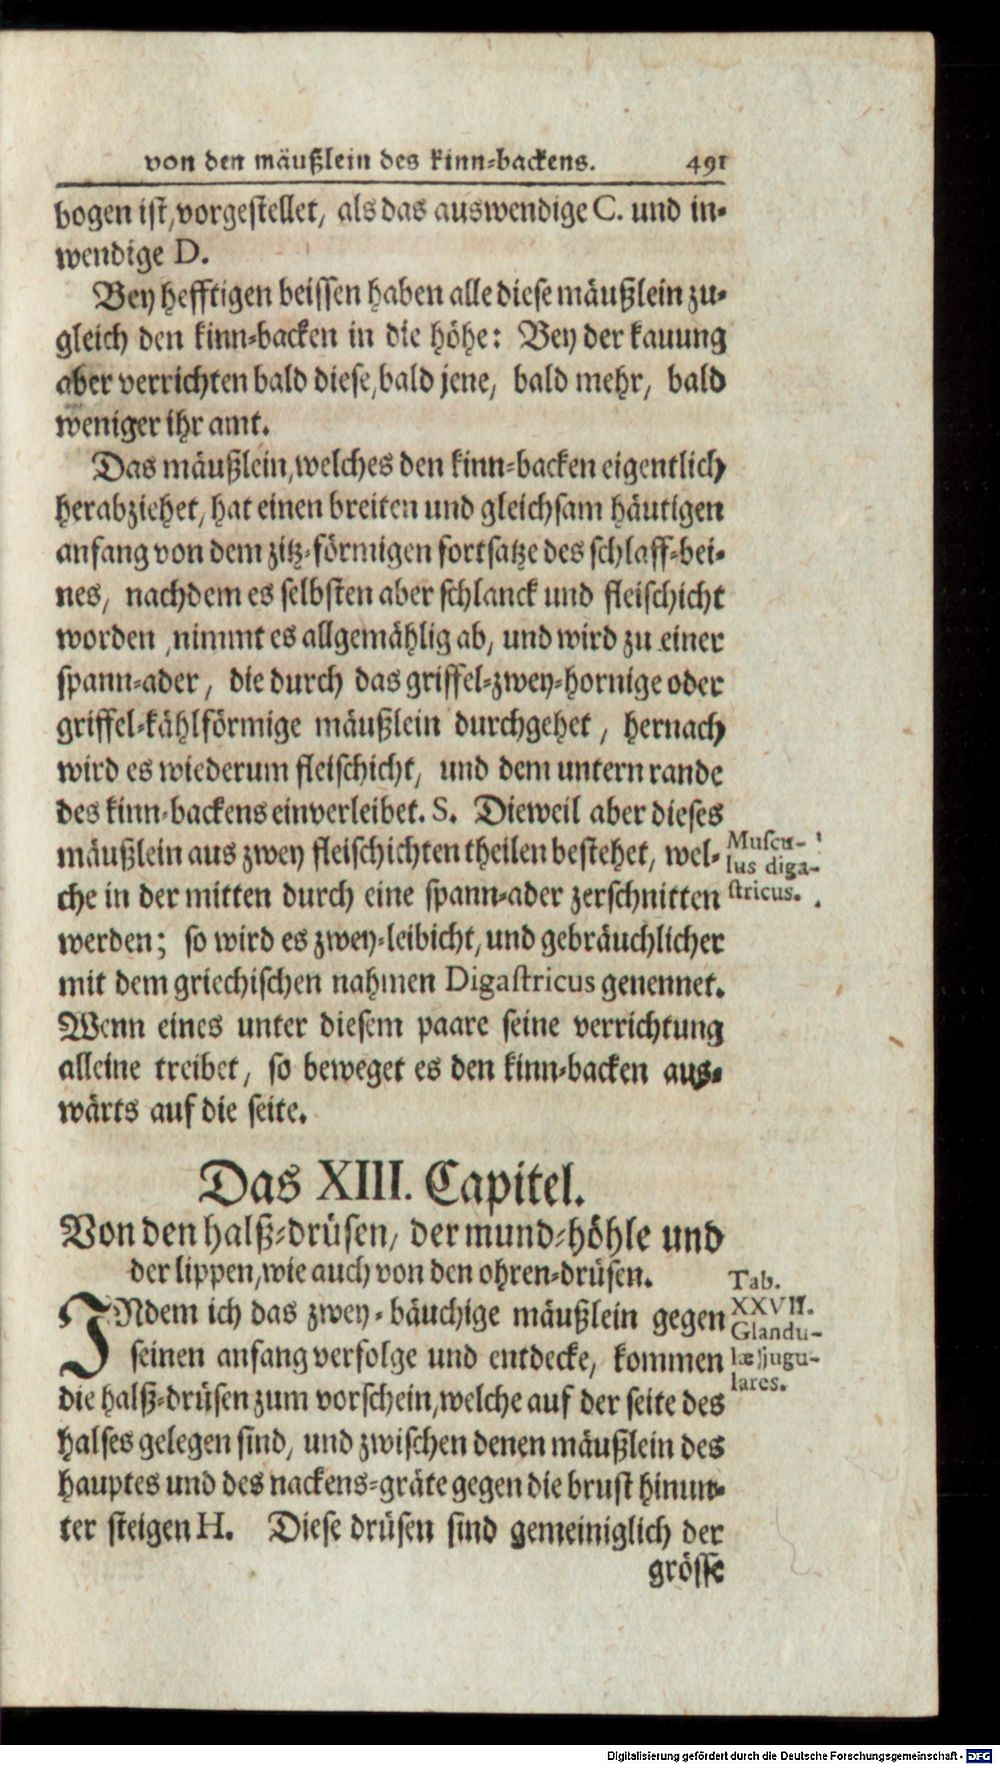 von den mäußlein des kinn-backens. 491
bogen ist, vorgestellet, als das auswendige C. und in-
wendige D.
Bey hefftigen beissen haben alle diese mäußlein zu-
gleich den kinn-backen in die höhe: Bey der kauung
aber verrichten bald diese, bald jene, bald mehr, bald
weniger ihr amt.
Das mäußlein, welches den kinn-backen eigentlich
herabziehet, hat einen breiten und gleichsam häutigen
anfang von dem zitz-förmigen fortsatze des schlaff-bei-
nes, nachdem es selbsten aber schlanck und fleischicht
worden, nimmt es allgemählig ab, und wird zu einer
spann-ader, die durch das griffel-zwey-hornige oder
griffel-kählförmige mäußlein durchgehet, hernach
wird es wiederum fleischicht, und dem untern rande
des kinn-backens einverleibet. S. Dieweil aber dieses
mäußlein aus zwey fleischichten theilen bestehet, wel-
che in der mitten durch eine spann-ader zerschnitten
werden; so wird es zwey-leibicht, und gebräuchlicher
mit dem griechischen nahmen Digastricus genennet.
Wenn eines unter diesem paare seine verrichtung
alleine treibet, so beweget es den kinn-backen aus-
wärts auf die seite.
Muscu-
lus diga-
stricus.
Das XIII. Capitel.
Von den halß-drüsen, der mund-höhle und
der lippen, wie auch von den ohren-drüsen.
INdem ich das zwey-bäuchige mäußlein gegen
seinen anfang verfolge und entdecke, kommen
die halß-drüsen zum vorschein, welche auf der seite des
halses gelegen sind, und zwischen denen mäußlein des
hauptes und des nackens-gräte gegen die brust hinun-
ter steigen H. Diese drüsen sind gemeiniglich der
grösse
Tab.
XXVII.
Glandu-
læ jugu-
lares.
Digitalisierung gefördert durch die Deutsche Forschungsgemeinschaft - DFG